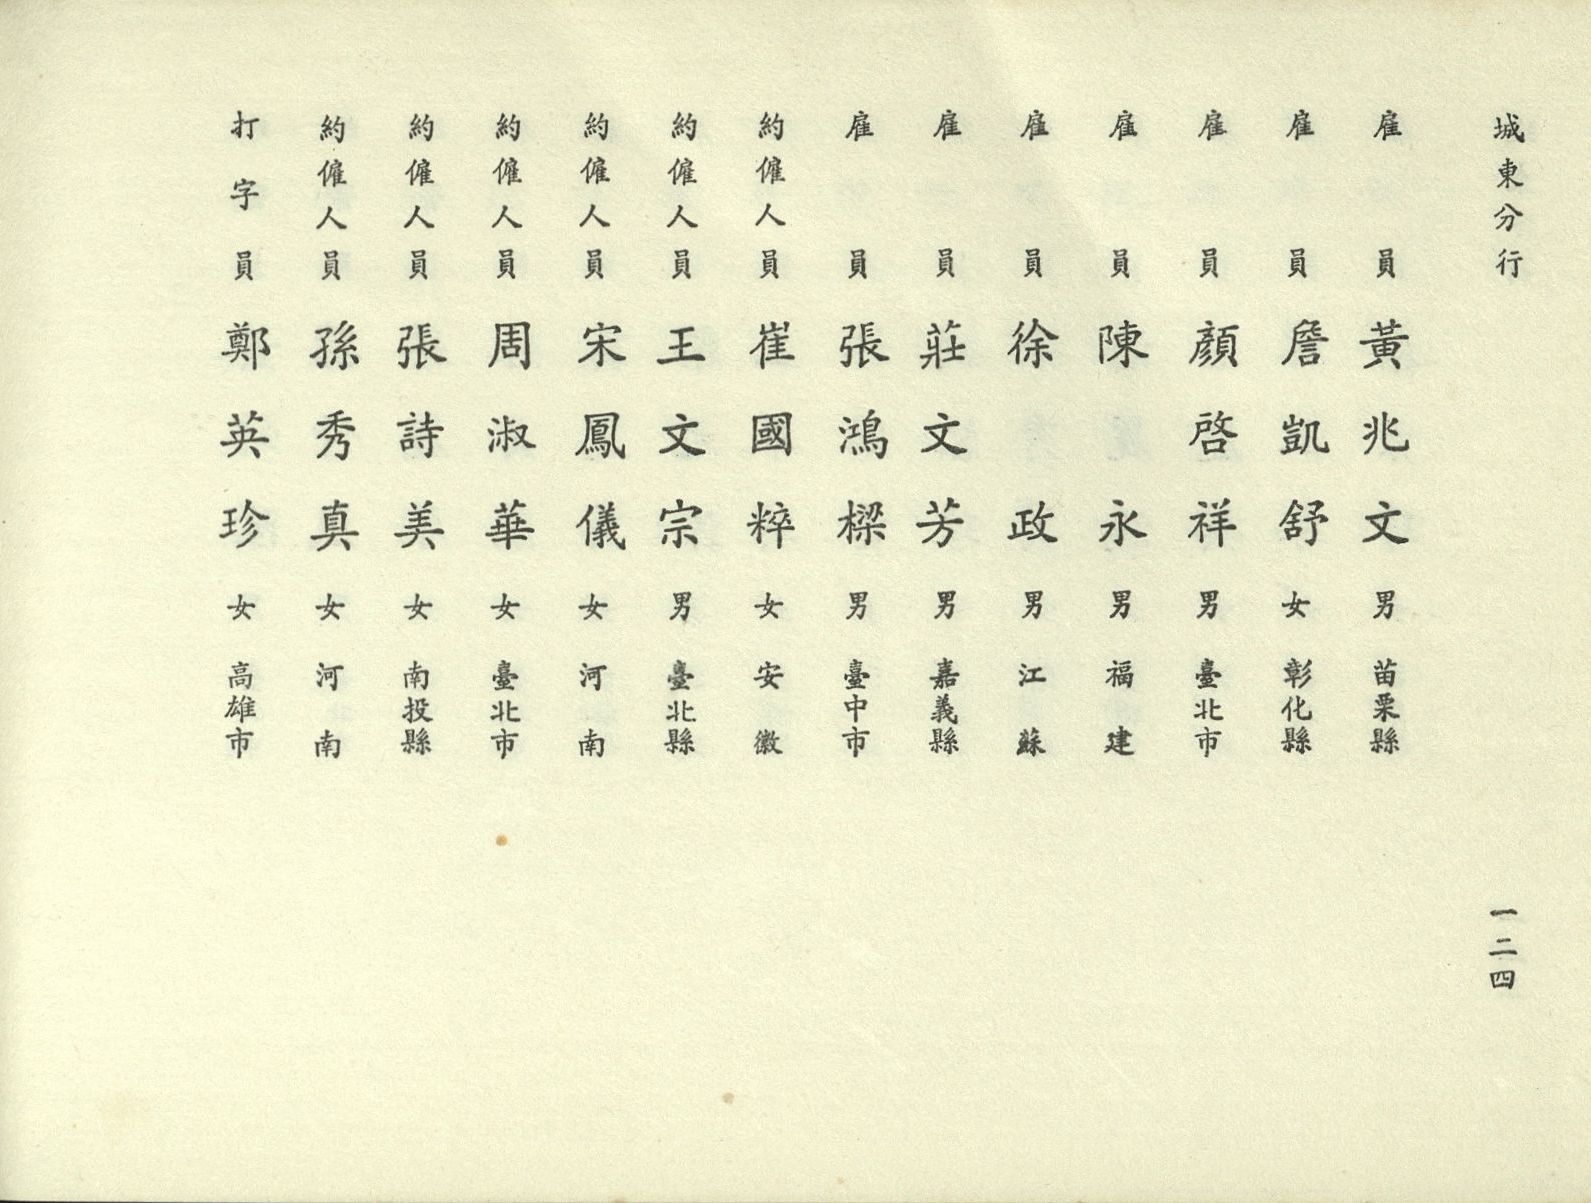 城東分行 一二四
雇員 黃兆文 男 苗栗縣
雇員 詹凱舒 女 彰化縣
雇員 顏啓祥 男 臺北市
雇員 陳永 男 福建
雇員 徐政 男 江蘇
雇員 莊文芳 男 嘉義縣
雇員 張鴻樑 男 臺中市
約僱人員 崔國粹 女 安徽
約僱人員 王文宗 男 臺北縣
約僱人員 宋鳳儀 女 河南
約僱人員 周淑華 女 臺北市
約僱人員 張詩美 女 南投縣
約僱人員 孫秀真 女 河南
打字員 鄭英珍 女 高雄市